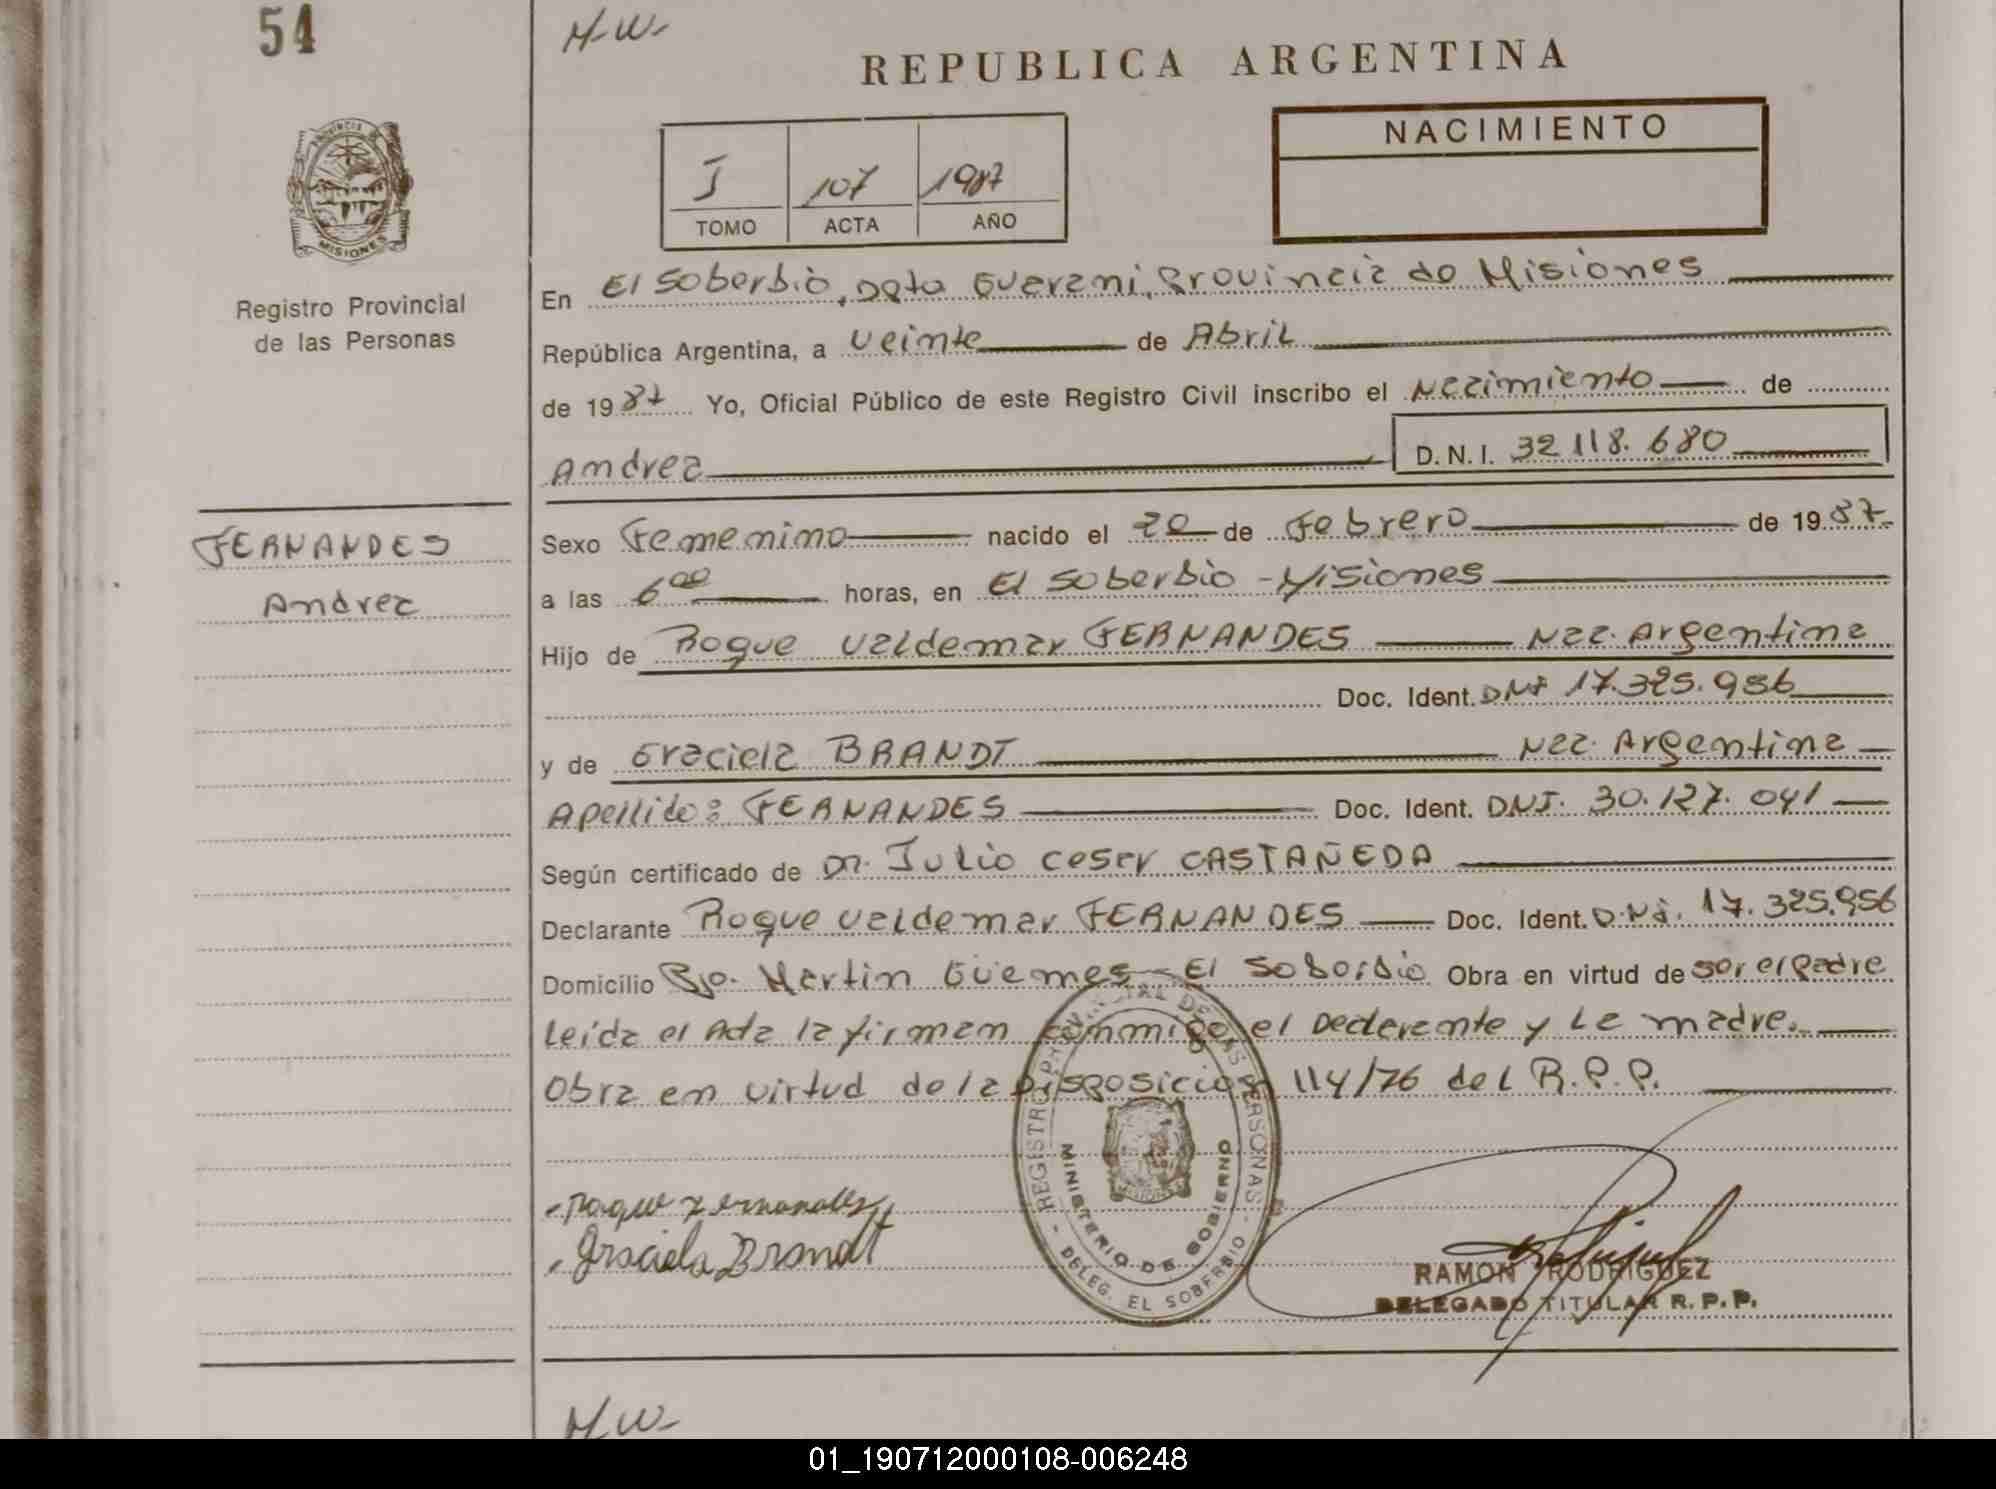 54
H-W-
REPUBLICA ARGENTINA
NACIMIENTO
I 107 1987
TOMO ACTA AÑO
PROVINCIA DE MISIONES
Registro Provincial
de las Personas
En El Soberbio, Dpto Guarani, Provincia de Misiones
República Argentina, a Veinte de Abril
de 1987 Yo, Oficial Público de este Registro Civil inscribo el Nacimiento de
Andrea D.N.I. 32118.680
FERNANDES
Andrea
Sexo Femenino nacido el 20 de Febrero de 1987
a las 6⁰⁰ horas, en El Soberbio - Misiones
Hijo de Roque Valdemar FERNANDES Nac. Argentina
Doc. Ident. DNI 17.325.956
y de Graciela BRANDT Nac. Argentina
Apellido: FERNANDES Doc. Ident. DNI. 30.127.041
Según certificado de Dr. Julio Cesar CASTAÑEDA
Declarante Roque Valdemar FERNANDES Doc. Ident. D.N.I. 17.325.956
Domicilio Bjo. Martin Güemes - El Soberbio Obra en virtud de ser el Padre
Leida el Acta la firman conmigo el Declarante y La madre.
Obra en virtud de la Disposicion 114/76 del R.P.P.
REGISTRO PROVINCIAL DE LAS PERSONAS
MINISTERIO DE GOBIERNO
DELEG. EL SOBERBIO
Roque Fernandes
Graciela Brandt
RAMON RODRIGUEZ
DELEGADO TITULAR R.P.P.
H-W-
01_190712000108-006248